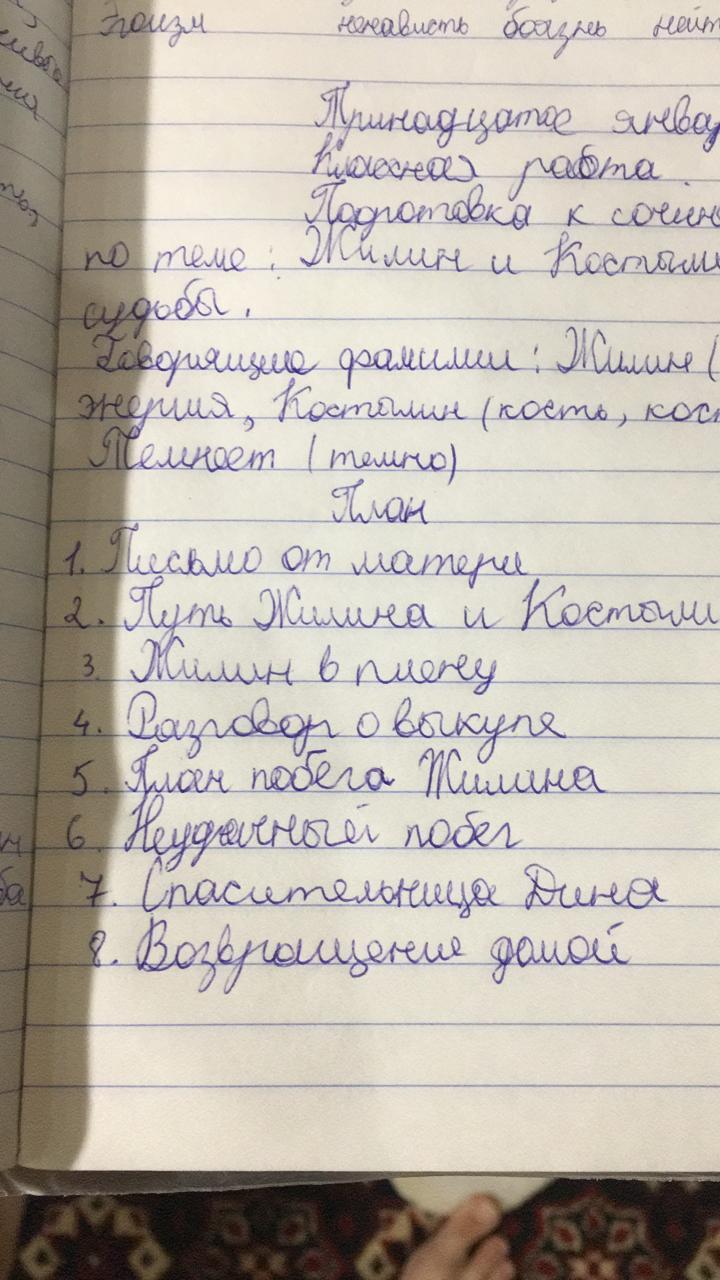 эгоизм ненависть боязнь
Тринадцатое янва
Классная работа.
Подготовка к сочин
по теме: Жилин и Костыли
судьбы.
Говорящие фамилии: Жилин (
энергия, Костылин (кость, кос
Темнеет (темно)
План
1. Письмо от матери
2. Путь Жилина и Костыли
3. Жилин в плену
4. Разговор о выкупе
5. План побега Жилина
6. Неудачный побег
7. Спасительница Дина
8. Возвращение домой